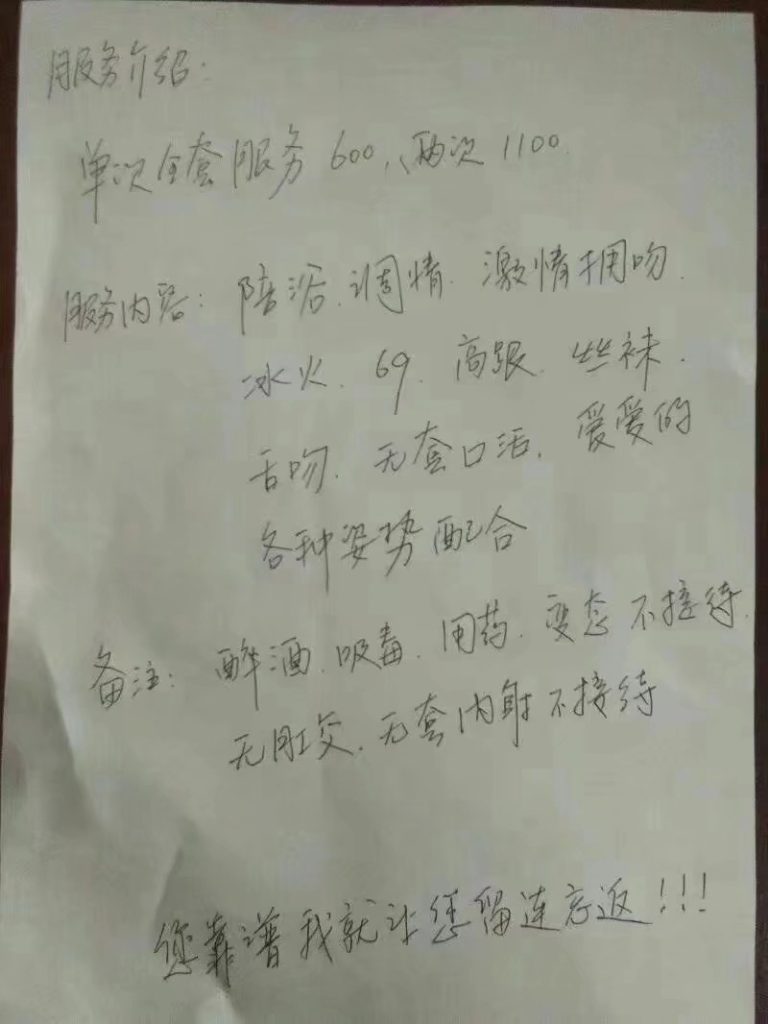 服务介绍:
单次全套服务600、两次1100.
服务内容: 陪浴、调情、激情拥吻、
冰火、69、高跟、丝袜、
舌吻、无套口活、爱爱的
各种姿势配合
备注: 醉酒、吸毒、用药、变态不接待、
无肛交、无套内射不接待
您靠谱我就让您留连忘返!!!